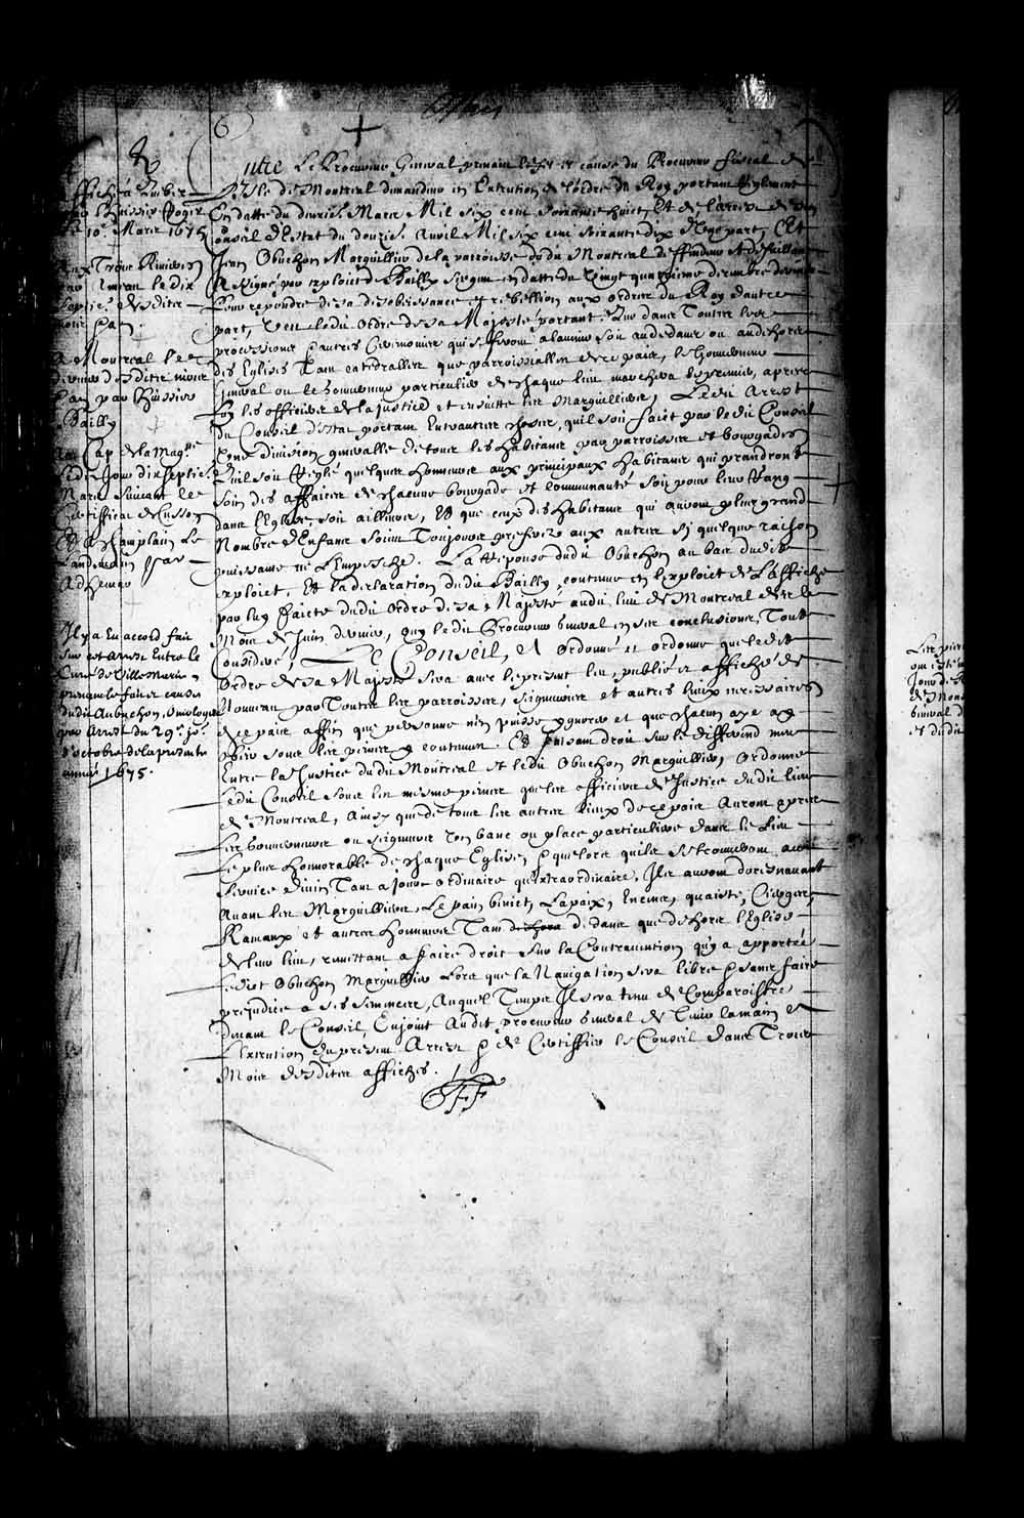 Affiché a Quebec
par l'huissier Roger
le 10e. Mars 1675
Aux Trois Rivieres
par le dix
septie. desdites
mois &an
A Montreal le
dernier desdites mois
&an par huissier
Bailly
Au Cap de la Magne
ledit Jour dix septie.
Mars suivant le
Certifficat de Cusson
Et a Champlain Le
Landemain par
Adhemar
Il y a eu accord fait
sur cet arrest Entre le
Curé de Ville Marie
prenant le fait et cause
dudit Aubuchon, omologué
par Arrest du 29e. Jor.
d'octobre de la presente
année 1675.
Entre Le Procureur General prenant le fait et cause du Procureur fiscal de
L'Isle de Montreal demandeur en Execution de l'ordre du Roy portant Reglement
En datte du Mars Mil six cent soixante huict, Et de l'arrest de son
Conseil d'Estat du douzie. Avril Mil six cent soixante dix d'une part, Et
Jean Obuchon Marguillier de la parroisse dudit Montreal deffendeur et deffaillant
Assigné par exploict de Bailly sergent en datte du Vingt quatrieme decembre dernier
Pour repondre de sa desobeissance et rebellion aux ordres du Roy d'autre
part, Veu ledit Ordre de sa Majesté portant Que dans Toutes les
processions & autres Ceremonies qui se feront a l'avenir soit au dedans ou au dehors
des Eglises Tant cathedralles que parroissialles de ce pais, le Gouverneur
General ou le Gouverneur particulier de chaque lieu marchera le premier, apres
luy les officiers de la justice et ensuitte les Marguilliers, Ledit Arrest
du Conseil d'Estat portant Entr'autres choses, qu'il soit faict par ledit Conseil
Une division generalle de tous les habitans par parroisses et bourgades
Qu'il soit Reglé quelques honneurs aux principaux habitans qui prendront
soin des affaires de chacune bourgade et communauté soit pour leur Rang
dans l'Eglise, soit ailleurs, Et que ceux des habitans qui auront plus grand
Nombre d'Enfans soient Toujours preferez aux autres sy quelque raison
puissante ne L'Empesche. La Reponse dudit Obuchon au bas dudit
exploict, Et la declaration dudit Bailly, contenue en l'exploict de L'affiche
par luy faicte dudit Ordre de sa Majesté audit lieu de Montreal dez le
Mois de Juin dernier, Ouy ledit Procureur General en ses conclusions, Tout
Consideré, Le Conseil, A Ordonné et ordonne que ledit
Ordre de sa Majesté sera avec le present leu, publié et affiché de
Nouveau par Toutes les parroisses, seigneuries et autres lieux necessaires
de ce pais, affin que personne n'en puisse ignorer et que chacun aye a y
obeir sous les peines y contenues. Et faisant droit sur le differend meu
Entre la Justice dudit Montreal et ledit Obuchon Marguillier, Ordonne
Ledit Conseil sous les mesmes peines que les officiers de Justice dudit lieu
de Montreal, Ainsy que de tous les autres lieux de ce pais Auront apres
Les Gouverneurs ou Seigneurs Ton banc ou place particuliere dans le Lieu
Le plus honnorable de chaque Eglise, & que lors qu'ils se trouveront au
Service divin Tant a jours Ordinaires qu'extraordinaires, Ils auront doresnavant
Avant les Marguilliers, Le pain benict, La paix, Encens, queste, Cierges,
Rameaux et autres honneurs Tant dehors de dans que dehors l'Eglise
de leur lieu, remettant a faire droit sur la Contravention qu'y a apporté
Ledict Obuchon Marguillier Lors que la Navigation sera libre & sans faire
prejudice a ses semences, Auquel Temps Il sera tenu de Comparoistre
devant le Conseil Enjoint Audit procureur General de Tenir la main a
L'execution du present Arrest & de Certiffier le Conseil dans Trois
Mois desdites affiches.